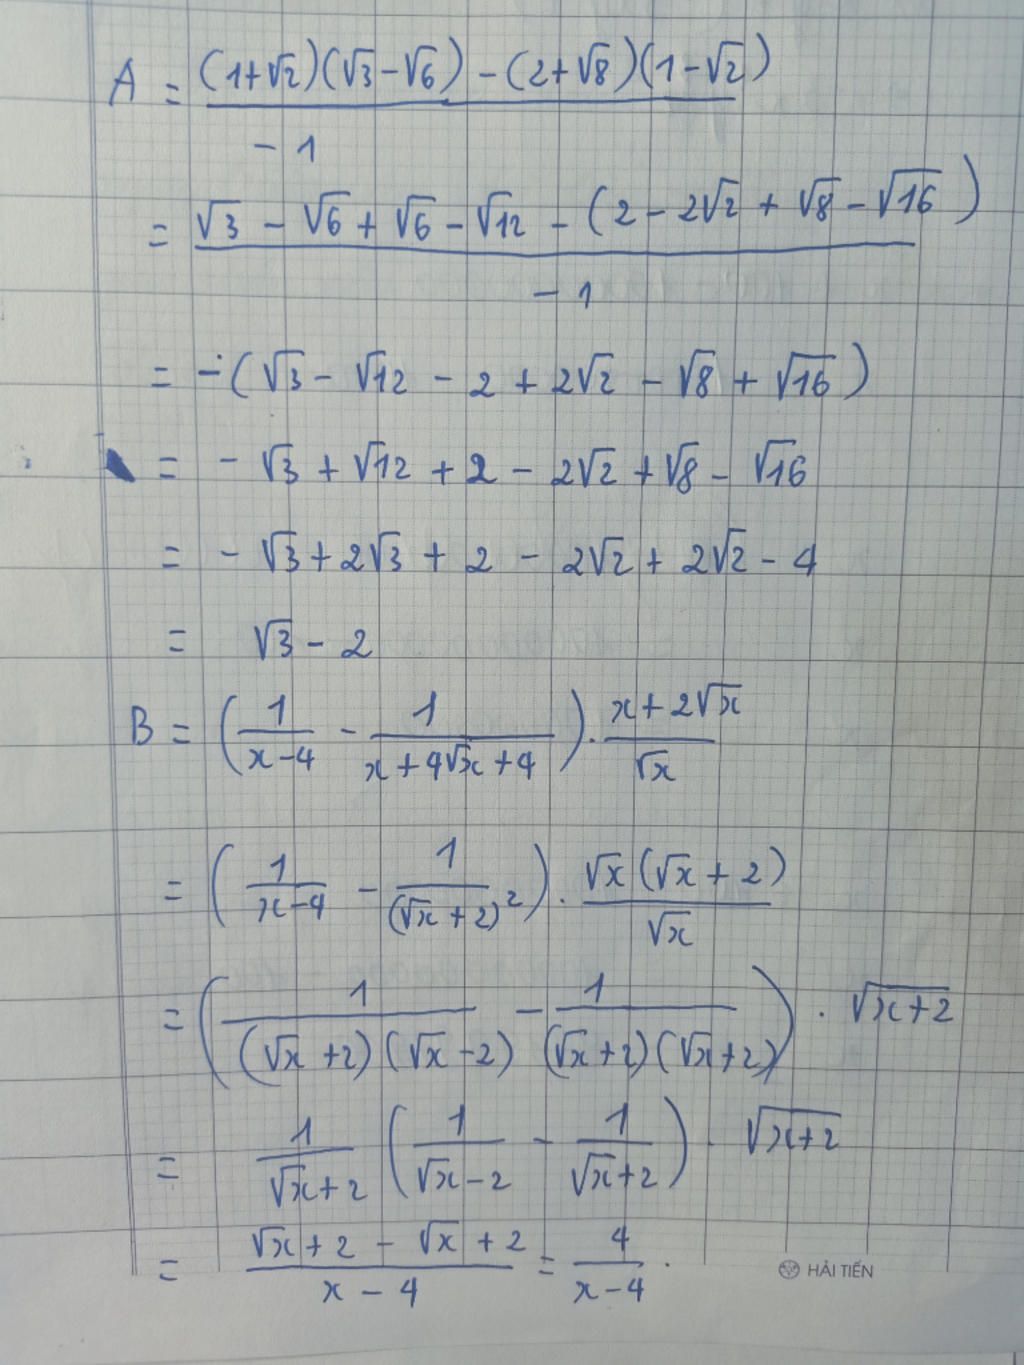 A = ((1+√2)(√3-√6) - (2+√8)(1-√2))/(-1)
= (√3 - √6 + √6 - √12 - (2 - 2√2 + √8 - √16))/(-1)
= -(√3 - √12 - 2 + 2√2 - √8 + √16)
= - √3 + √12 + 2 - 2√2 + √8 - √16
= - √3 + 2√3 + 2 - 2√2 + 2√2 - 4
= √3 - 2
B = (1/(x-4) - 1/(x+4√x+4)) . (x+2√x)/√x
= (1/(x-4) - 1/(√x+2)²) . √x(√x+2)/√x
= (1/((√x+2)(√x-2)) - 1/((√x+2)(√x+2))) . √(x+2)
= 1/(√x+2) (1/(√x-2) - 1/(√x+2)) . √(x+2)
= (√x+2 - √x+2)/(x-4) = 4/(x-4) .
HẢI TIẾN